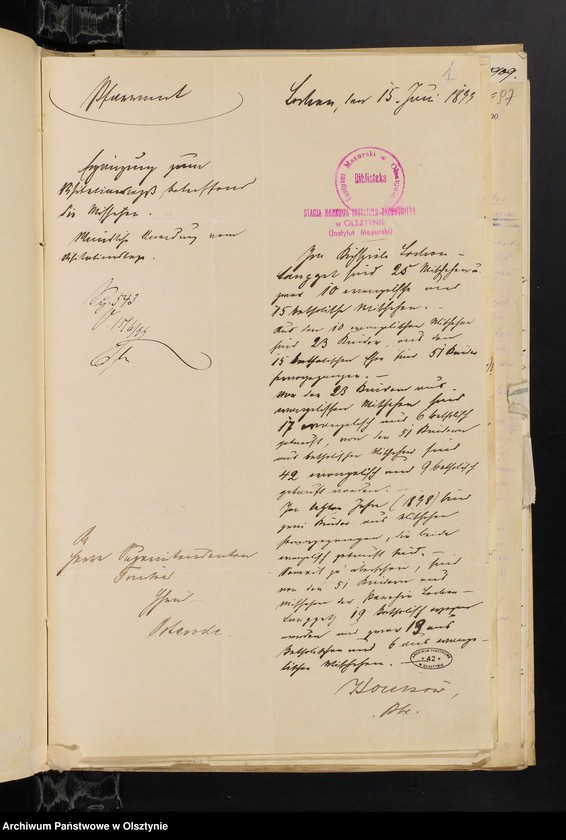 1
Pfarramt
Locken, den 15. Juni 1899
Ergänzung zum
betreffend
die Mischehen.
Instytut Mazurski w Olsztynie
Biblioteka
STACJA NAUKOWA
w OLSZTYNIE
(Instytut Mazurski)
Im Kirchspiele Locken-
Langgut sind 25 Mischehen u.
zwar 10 evangelische und
15 katholische Mischehen. –
Aus den 10 evangelischen Mischehen
sind 23 Kinder, aus den
15 katholischen Ehen sind 51 Kinder
hervorgegangen. –
Von den 23 Kindern aus
evangelischen Mischehen sind
17 evangelisch und 6 katholisch
getauft, von den 51 Kindern
aus katholischen Mischehen sind
42 evangelisch und 9 katholisch
getauft worden. –
Im letzten Jahr (1898) sind
zwei Kinder aus Mischehen
hervorgegangen, die beide
evanglisch getauft sind. –
sind
von den 51 Kindern aus
Mischehen der Parochie Locken-
Langgut 19 katholisch
worden und zwar 13 aus
katholischen und 6 aus evange-
lischen Mischehen. –
An
Herrn Superintendenten
Osterode.
ARCHIWUM PAŃSTWOWE
* 42 *
w OLSZTYNIE
909.
97
Archiwum Państwowe w Olsztynie